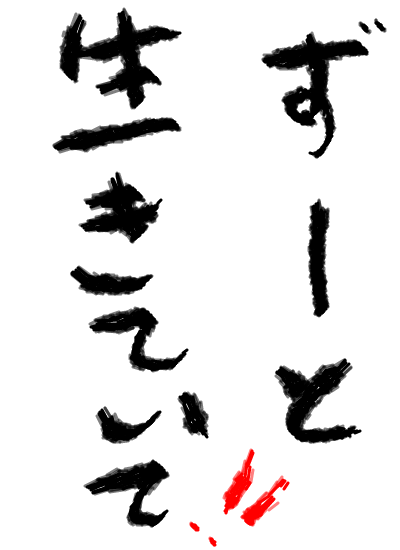 ずーと
生きていて!!